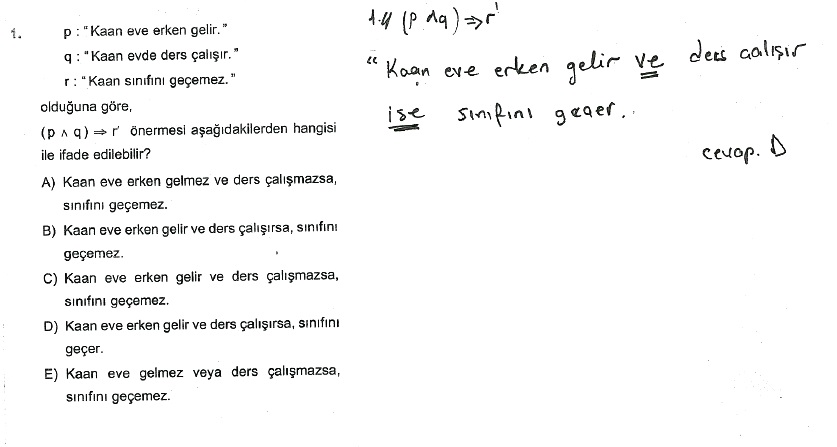 1.
p : "Kaan eve erken gelir."
q : "Kaan evde ders çalışır."
r : "Kaan sınıfını geçemez."
olduğuna göre,
(p ∧ q) ⇒ r' önermesi aşağıdakilerden hangisi
ile ifade edilebilir?
A) Kaan eve erken gelmez ve ders çalışmazsa,
sınıfını geçemez.
B) Kaan eve erken gelir ve ders çalışırsa, sınıfını
geçemez.
C) Kaan eve erken gelir ve ders çalışmazsa,
sınıfını geçemez.
D) Kaan eve erken gelir ve ders çalışırsa, sınıfını
geçer.
E) Kaan eve gelmez veya ders çalışmazsa,
sınıfını geçemez.
(p ∧ q) ⇒ r'
"Kaan eve erken gelir ve ders çalışır
ise sınıfını geçer.
cevap. D